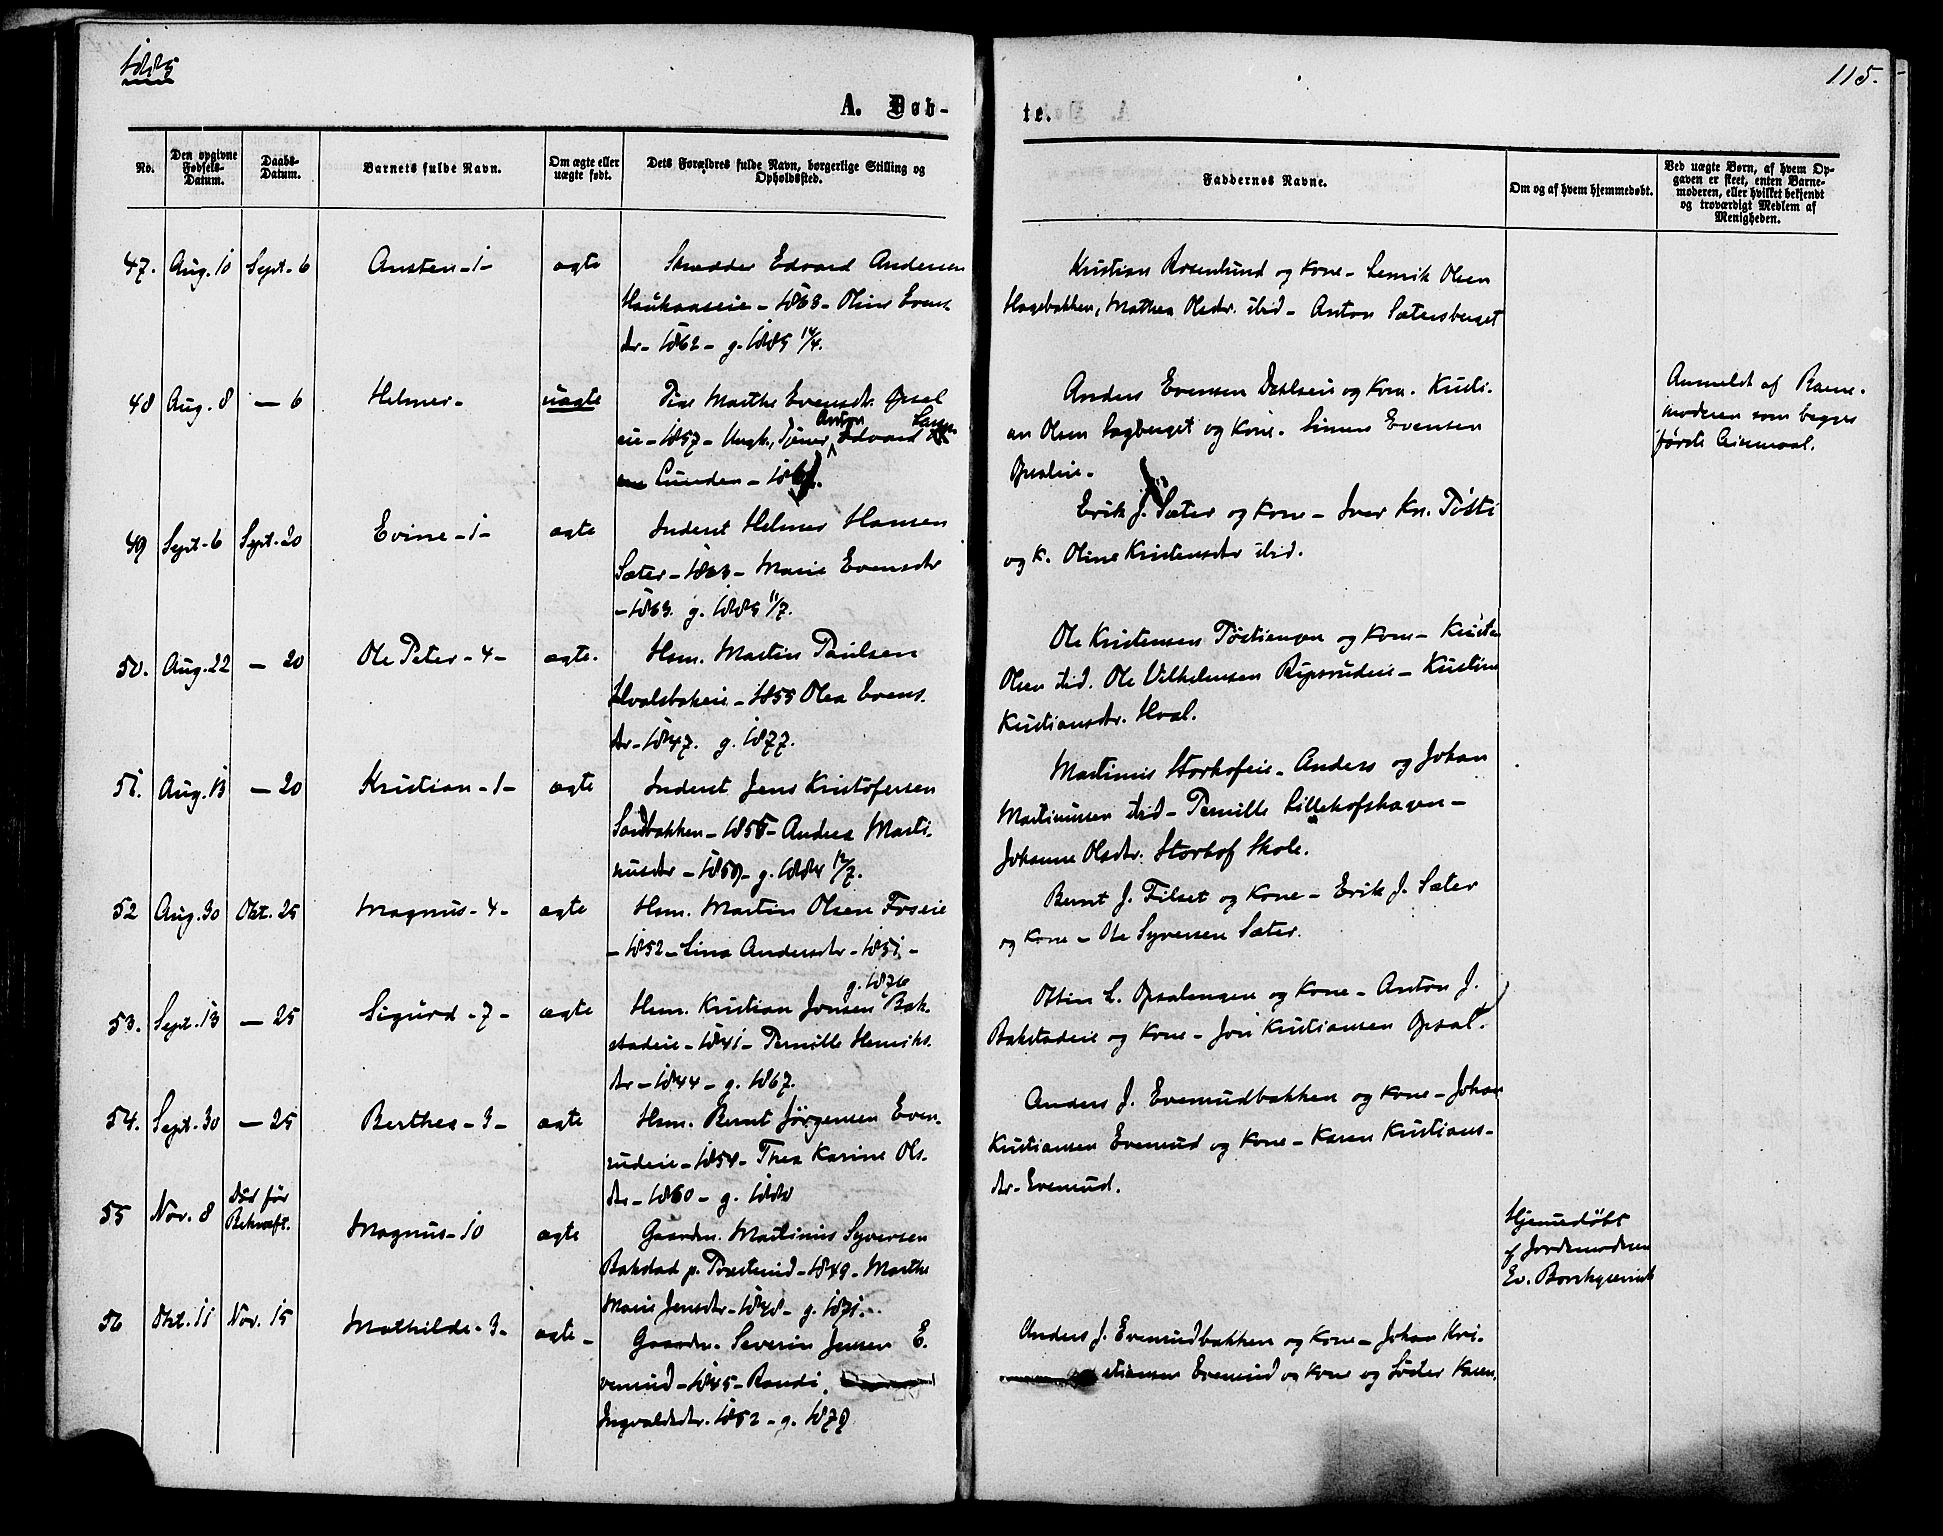 1885
115.
A. Døb-
te.
No.
Den opgivne Fødsels-Datum.
Daabs-Datum.
Barnets fulde Navn.
Om ægte eller uægte født.
Dets Forældres fulde Navn, borgerlige Stilling og Opholdssted.
Faddernes Navne.
Om og af hvem hjemmedøbt.
Ved uægte Børn, af hvem Op-
gaven er skeet, enten Barne-
moderen, eller hvilket bekjendt
og troværdigt Medlem af
Menigheden.
47. Aug. 10 Sept. 6 Austen - 1 - ægte
Skrædder Edvard Andersen
Haukaaseie - 1863 - Oline Evens-
dr - 1862 - g. 1885 14/4.
Kristian Rosenlund og Kone - Henrik Olsen
Hagebakken, Mathea Olsdr. ibid - Anton Sætersberget
48 Aug. 8 - 6 Helmer - uægte
Pige Marthe Evensdr. Opsal
eie - 1857 - Ungk., Tjener Anton Edvard
Lunden - 186
Anders Evensen Dahlseie og Kone. Kristi-
an Olsen Hagberget og Kone. Simen Evensen
Opsaleie -
Anmeldt af Barne-
moderen som begges
første Leiermaal.
49 Sept. 6 Sept. 20 Evine - 1 - ægte
Inderst Helmer Hansen
Sæter - 1863 - Marie Evensdr
- 1863. g. 1885 11/7.
Erik J. Sæter og Kone - Iver Kr. Tøsti
og K. Oline Kristensdr ibid.
50. Aug. 22 - 20 Ole Peter - 4 - ægte.
Hsm. Martin Paulsen
Hvalsbakeie - 1855 Olea Evens.
dr - 1847. g. 1877.
Ole Kristensen Tøstiengen og Kone - Kristen
Olsen ibid. Ole Vilhelmsen Ripsrudeie - Kristine
Kristiansdr. Hval.
51. Aug. 13 - 20 Kristian - 1 - ægte
Inderst Jens Kristofersen
Sandbakken - 1855 - Andrea Marti-
nusdr - 1859 - g. 1884 12/7.
Martinus Storhofeie - Anders og Johan
Martinussen ibid - Pernille Lillehofshagen -
Johanne Olsdr. Storhof Skole.
52 Aug. 30 Okt. 25 Magnus - 4 - ægte
Hsm. Martin Olsen Foseie
- 1852 - Lina Andersdr - 1851 -
g. 1876
Bernt J. Filset og Kone - Erik J. Sæter
og Kone - Ole Syversen Sæter.
53. Sept. 13 - 25 Sigurd - 7 - ægte
Hsm. Kristian Jonsen Bak-
stadeie - 1841 - Pernille Henriks.
dr - 1844 - g. 1867.
Ottin L. Opsalengen og Kone - Anton J.
Bakstadeie og Kone - Jon Kristiansen Opsal.
54. Sept. 30 - 25 Berthea - 3 - ægte
Hsm. Bernt Jørgensen Even-
rudeie - 1854 - Thea Karine Ols.
dr - 1860 - g. 1880
Anders J. Evenrudbakken og Kone - Johan
Kristiansen Evenrud og Kone - Karen Kristians-
dr - Evenrud.
55 Nov. 8 Død før Bekræft. Magnus - 10 ægte
Gaardm. Martinus Syversen
Bakstad p. Præsterud - 1849 - Marthe
Marie Jensdr - 1848 - g. 1871.
Hjemmedøbt
af Jordemoderen
Ev. Borchgrevink
56 Okt. 11 Nov. 15 Mathilde - 3 - ægte -
Gaardm. Severin Jensen E-
venrud - 1845 - Randi
Ingvaldsdr. 1852 - g. 1879
Anders J. Evenrudbakken og Kone - Johan Kri-
stiansen Evenrud og Kone og Søster Karen.